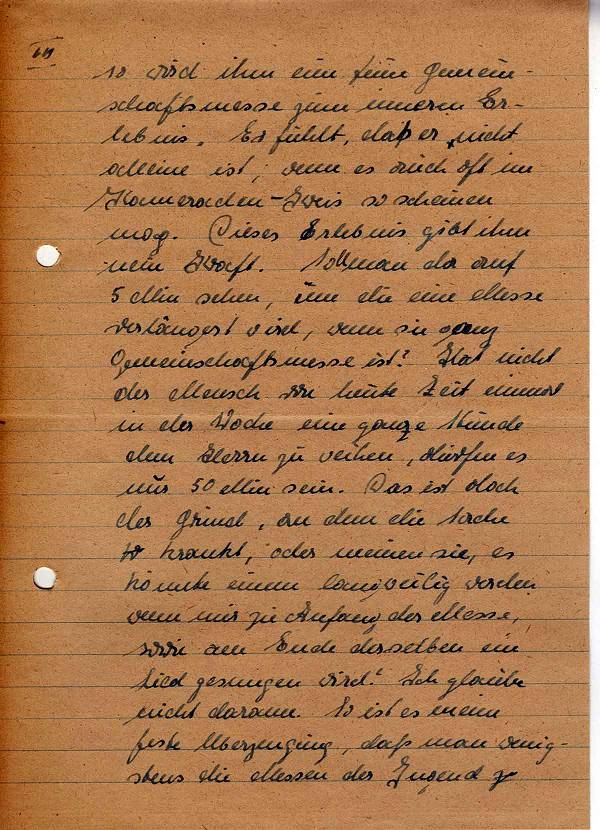 III
so wird ihm eine feine Gemein-
schaftsmesse zum inneren Er-
lebnis. Er fühlt, daß er nicht
alleine ist, wenn es auch oft im
Kameraden-Kreis so scheinen
mag. Dieses Erlebnis gibt ihm
neue Kraft. Soll man da auf
5 Min sehen, um die eine Messe
verlängert wird, wenn sie ganz
Gemeinschaftsmesse ist? Hat nicht
der Mensch von heute Zeit einmal
in der Woche eine ganze Stunde
dem Herrn zu weihen, dürfen es
nur 50 Min sein. Das ist doch
der Grund, an dem die Sache
krankt, oder meinen sie, es
könnte einem langweilig werden
wenn nur zu Anfang der Messe,
sowie am Ende derselben ein
Lied gesungen wird? Ich glaube
nicht daran. So ist es meine
feste Überzeugung, daß man wenig-
stens die Messen der Jugend